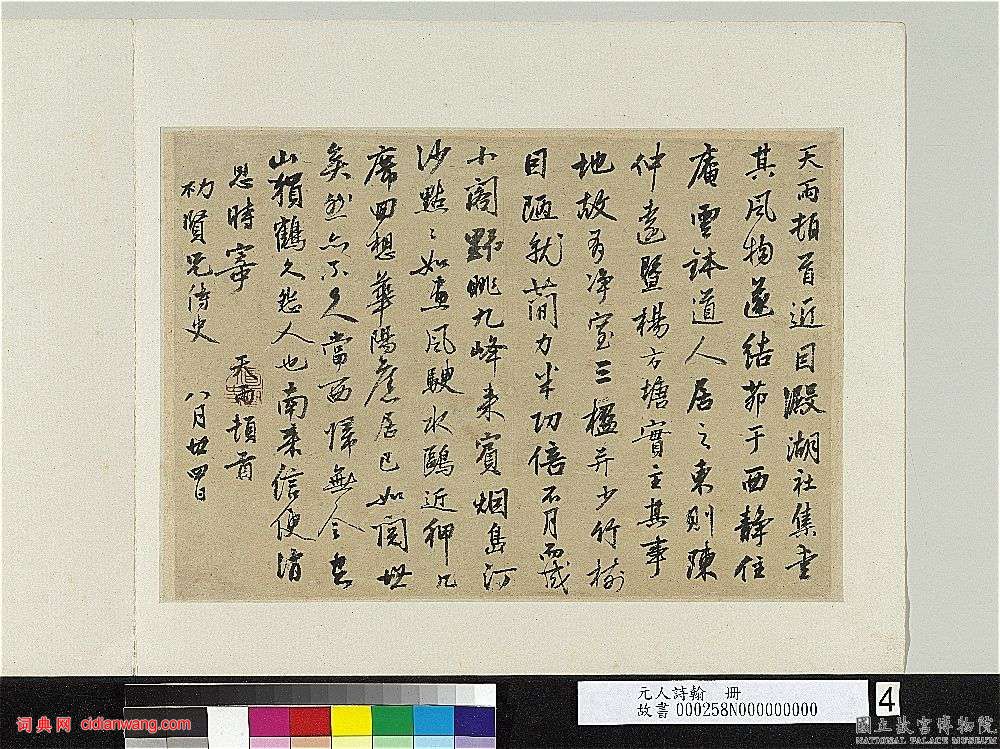 天雨頓首近因澱湖社集重
其風物遂結茆于西靜住
庵雲鉢道人居之東則陳
仲遠暨楊方塘實主其事
地故有淨室三楹并少竹樹
因陋就簡力半功倍不月而成
小閣野眺九峰來賓烟島汀
沙點〻如畫風駛水鷗近狎几
席回想華陽舊居已如閱世
矣然亦不久當西歸無令空
山猿鶴久怨人也南來信便清
思時寄
天雨頓首
初賢兄侍史 八月廿四日
元人詩翰 冊
故書 000258N000000000
4
國立故宮博物院
NATIONAL PALACE MUSEUM
词典网 cidianwang.com